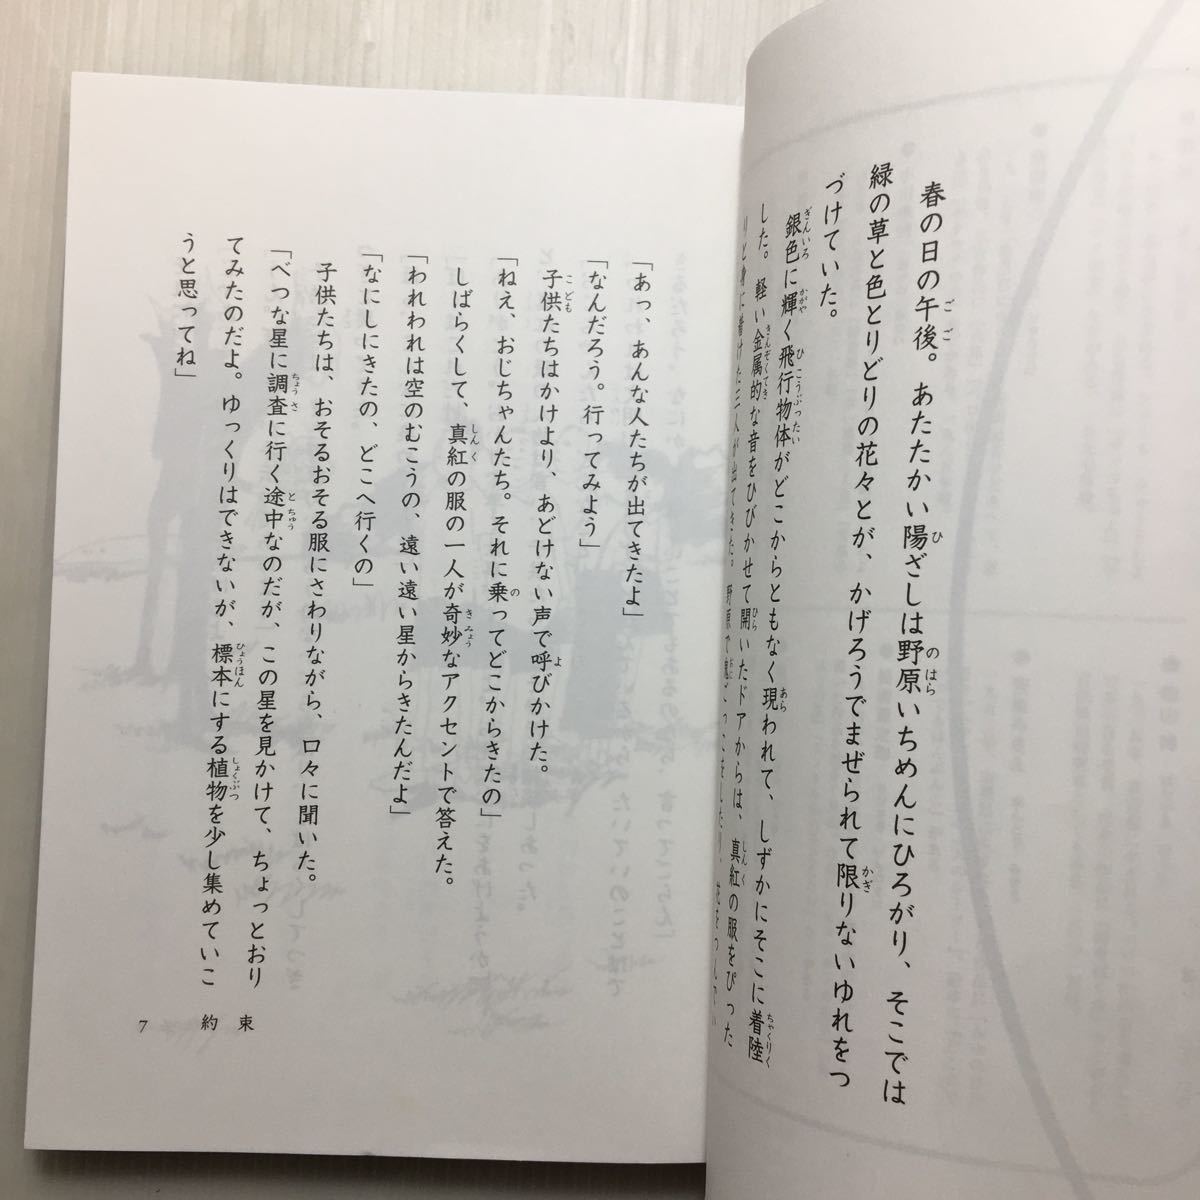 春の日の午後。あたたかい陽ざしは野原いちめんにひろがり、そこでは
緑の草と色とりどりの花々とが、かげろうでまぜられて限りないゆれをつ
づけていた。
銀色に輝く飛行物体がどこからともなく現われて、しずかにそこに着陸
した。軽い金属的な音をひびかせて開いたドアからは、真紅の服をぴった
りと身に着けた三人が出てきた。野原で
「あっ、あんな人たちが出てきたよ」
「なんだろう。行ってみよう」
子供たちはかけより、あどけない声で呼びかけた。
「ねえ、おじちゃんたち。それに乗ってどこからきたの」
しばらくして、真紅の服の一人が奇妙なアクセントで答えた。
「われわれは空のむこうの、遠い遠い星からきたんだよ」
「なにしにきたの、どこへ行くの」
子供たちは、おそるおそる服にさわりながら、口々に聞いた。
「べつな星に調査に行く途中なのだが、この星を見かけて、ちょっとおり
てみたのだよ。ゆっくりはできないが、標本にする植物を少し集めていこ
うと思ってね」
7 約束